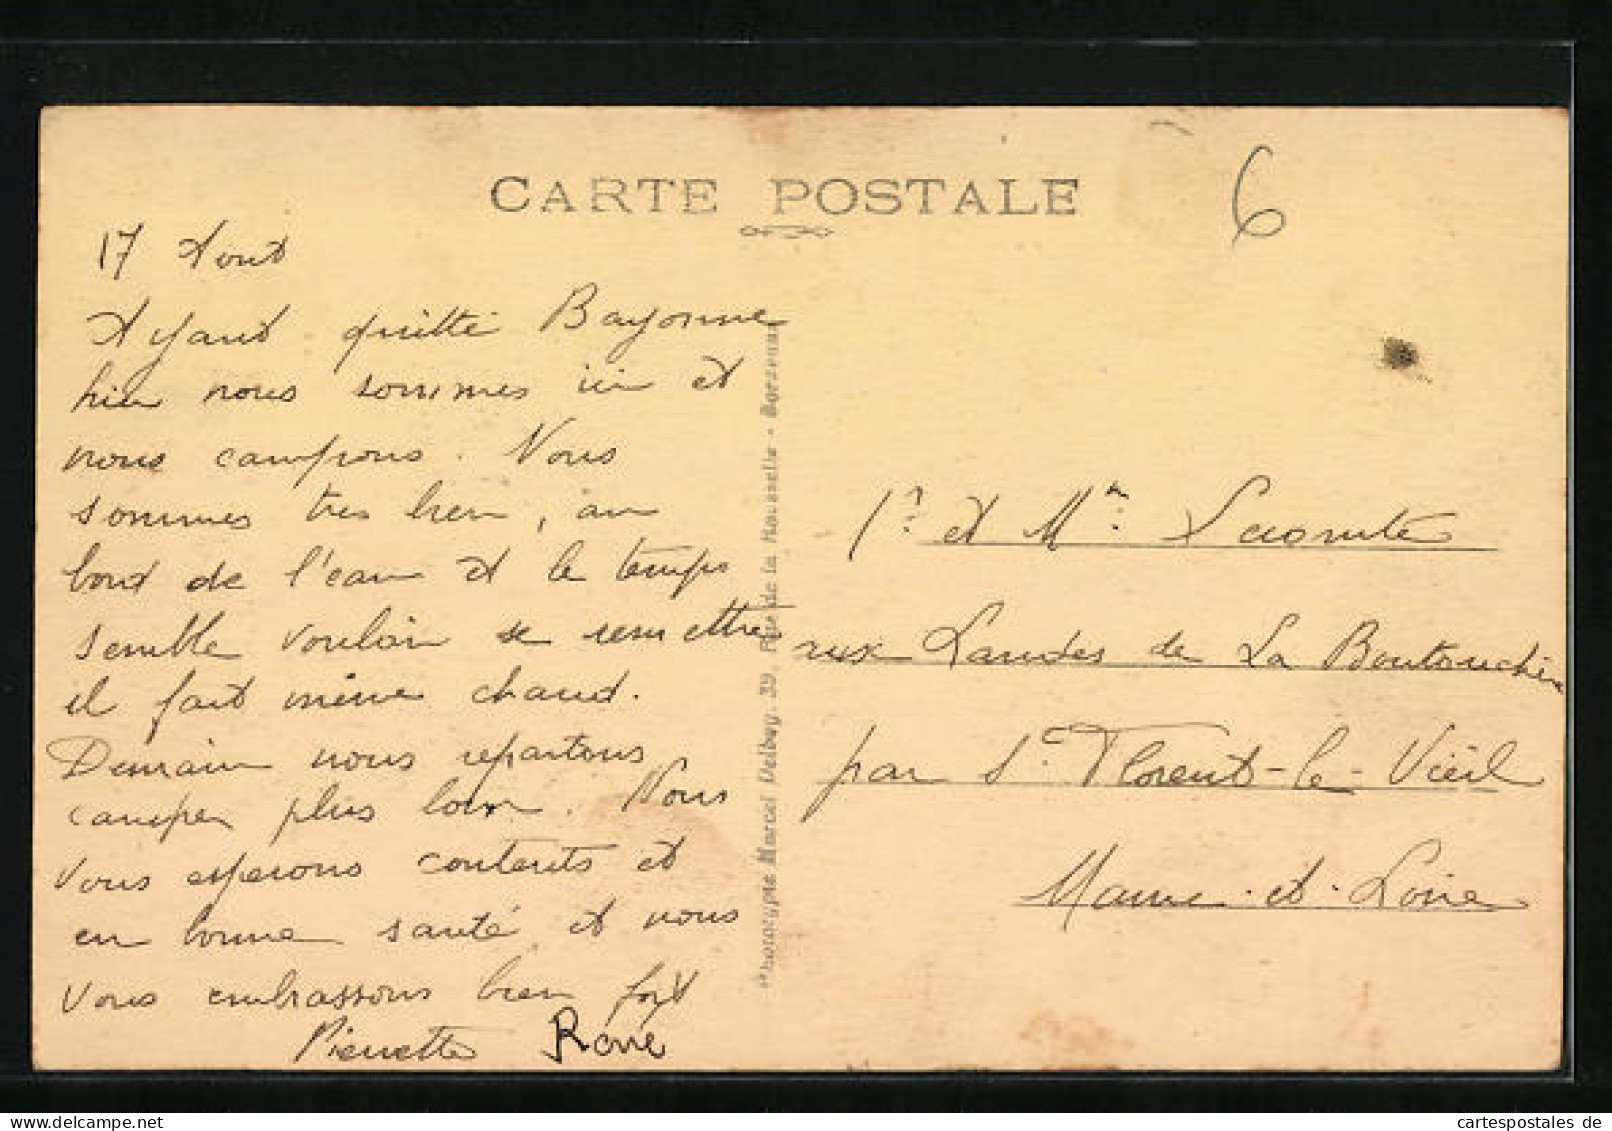 CARTE POSTALE
6
17 Aout
Ayant quitté Bayonne
hier nous sommes ici et
nous campons. Nous
sommes tres bien, au
bord de l'eau et le temps
semble vouloir se remettre
il fait même chaud.
Demain nous repartons
camper plus loin. Nous
vous esperons contents et
en bonne santé et nous
vous embrassons bien fort
Pierrette René
Phototypie Marcel Delboy, 39, Rue de la Rousselle - Bordeaux
et Mme Lecomte
aux Landes de La Boutouchère
par St Florent-le-Vieil
Maine-et-Loire
cartespostales.de